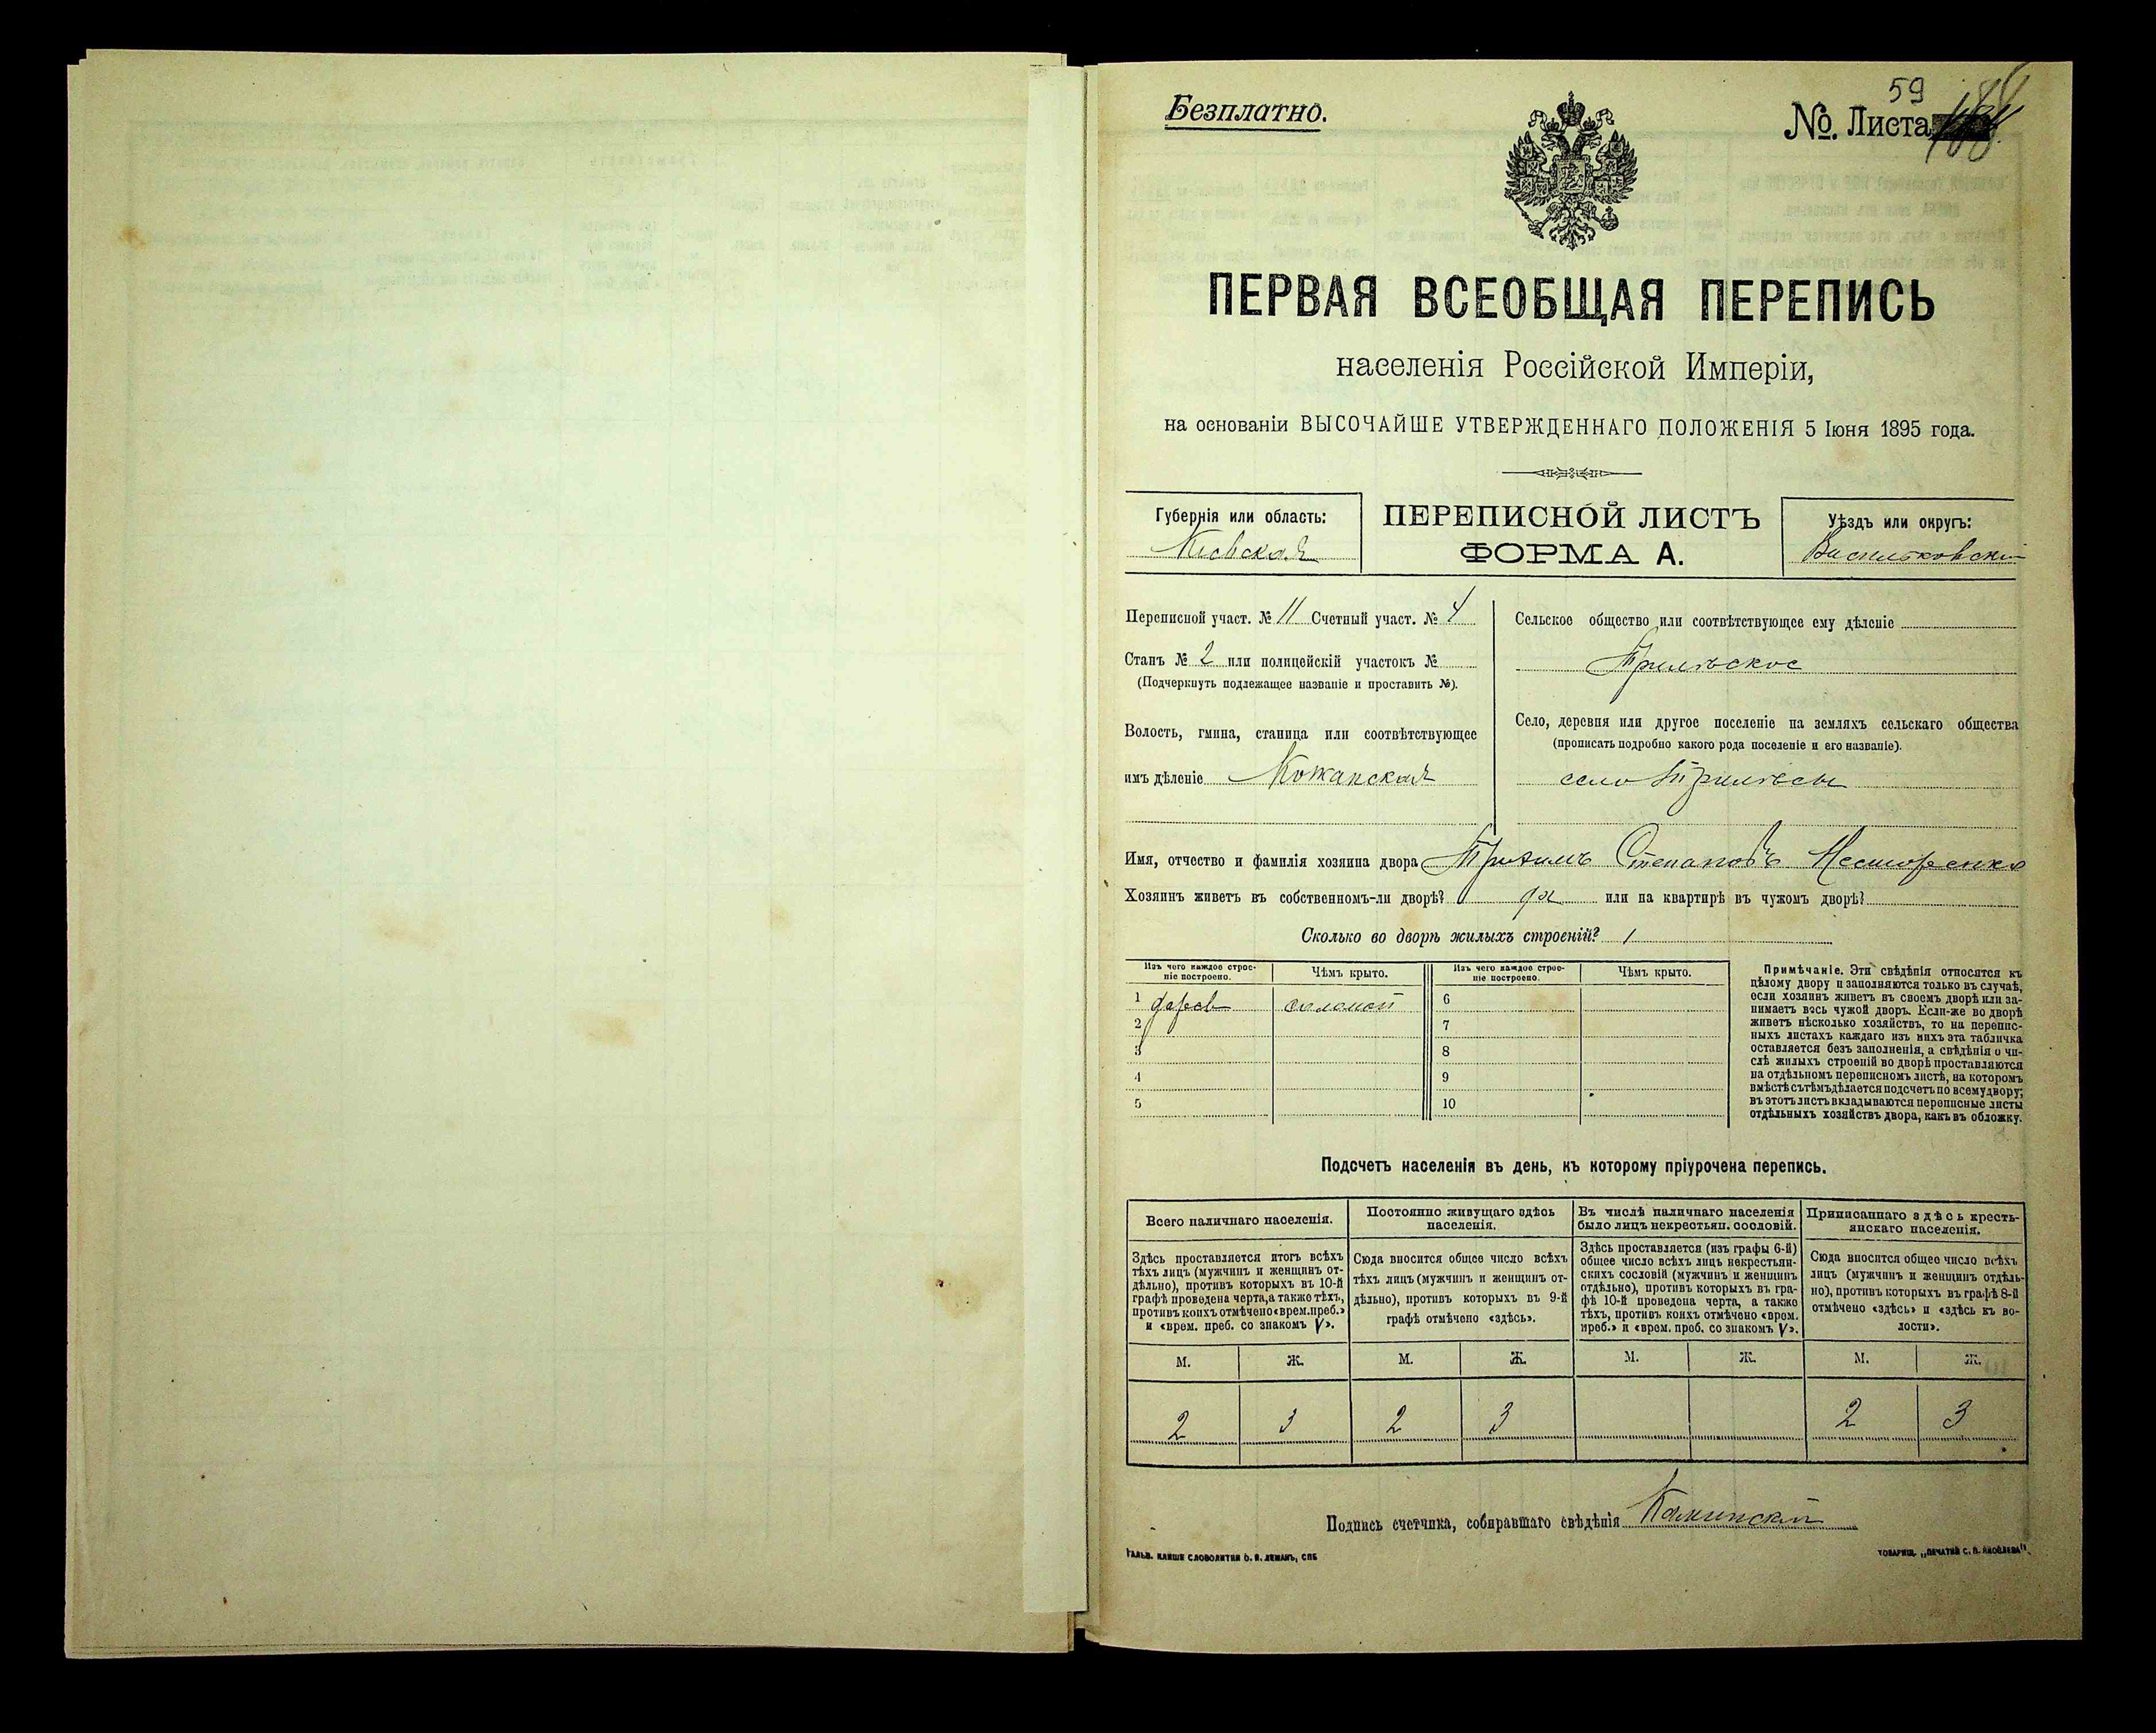 Безплатно.
59
№. Листа
ПЕРВАЯ ВСЕОБЩАЯ ПЕРЕПИСЬ
населенія Россійской Имперіи,
на основаніи ВЫСОЧАЙШЕ УТВЕРЖДЕННАГО ПОЛОЖЕНІЯ 5 Іюня 1895 года.
Губернія или область:
Кіевская
ПЕРЕПИСНОЙ ЛИСТЪ
ФОРМА А.
Уѣздъ или округъ:
Васильковскій
Переписной участ. № 11 Счетный участ. № 4
Станъ № 2 или полицейскій участокъ №
(Подчеркнуть подлежащее названіе и проставить №).
Волость, гмина, станица или соотвѣтствующее
имъ дѣленіе Кожанская
Сельское общество или соотвѣтствующее ему дѣленіе
Трилѣское
Село, деревня или другое поселеніе на земляхъ сельскаго общества
(прописать подробно какого рода поселеніе и его названіе).
село Трилѣсы
Имя, отчество и фамилія хозяина двора Трохимъ Степановъ Несторенко
Хозяинъ живетъ въ собственномъ-ли дворѣ? да или на квартирѣ въ чужомъ дворѣ?
Сколько во дворѣ жилыхъ строеній? 1
Изъ чего каждое строеніе построено.
Чѣмъ крыто.
Изъ чего каждое строеніе построено.
Чѣмъ крыто.
1 дерев соломой
2
3
4
5
6
7
8
9
10
Примѣчаніе. Эти свѣдѣнія относятся къ
цѣлому двору и заполняются только въ случаѣ,
если хозяинъ живетъ въ своемъ дворѣ или за-
нимаетъ весь чужой дворъ. Если-же во дворѣ
живетъ нѣсколько хозяйствъ, то на перепис-
ныхъ листахъ каждаго изъ нихъ эта табличка
оставляется безъ заполненія, а свѣдѣнія о чи-
слѣ жилыхъ строеній во дворѣ проставляются
на отдѣльномъ переписномъ листѣ, на которомъ
вмѣстѣ съ тѣмъ дѣлается подсчетъ по всему двору;
въ этотъ листъ вкладываются переписные листы
отдѣльныхъ хозяйствъ двора, какъ въ обложку.
Подсчетъ населенія въ день, къ которому пріурочена перепись.
Всего наличнаго населенія.
Здѣсь проставляется итогъ всѣхъ
тѣхъ лицъ (мужчинъ и женщинъ от-
дѣльно), противъ которыхъ въ 10-й
графѣ проведена черта, а также тѣхъ,
противъ коихъ отмѣчено «врем. преб.»
и «врем. преб. со знакомъ V».
Постоянно живущаго здѣсь
населенія.
Сюда вносится общее число всѣхъ
тѣхъ лицъ (мужчинъ и женщинъ от-
дѣльно), противъ которыхъ въ 9-й
графѣ отмѣчено «здѣсь».
Въ числѣ наличнаго населенія
было лицъ некрестьян. сословій.
Здѣсь проставляется (изъ графы 6-й)
общее число всѣхъ лицъ некрестьян-
скихъ сословій (мужчинъ и женщинъ
отдѣльно), противъ которыхъ въ гра-
фѣ 10-й проведена черта, а также
тѣхъ, противъ коихъ отмѣчено «врем.
преб.» и «врем. преб. со знакомъ V».
Приписаннаго здѣсь кресть-
янскаго населенія.
Сюда вносится общее число всѣхъ
лицъ (мужчинъ и женщинъ отдѣль-
но), противъ которыхъ въ графѣ 8-й
отмѣчено «здѣсь» и «здѣсь въ во-
лости».
М. Ж. М. Ж. М. Ж. М. Ж.
2 3 2 3 2 3
Подпись счетчика, собиравшаго свѣдѣнія Каминскій
ГАЛЬВ. КЛИШЕ СЛОВОЛИТНИ О. И. ЛЕМАНЪ, СПБ
ТОВАРИЩ. „ПЕЧАТНЯ С. П. ЯКОВЛЕВА"